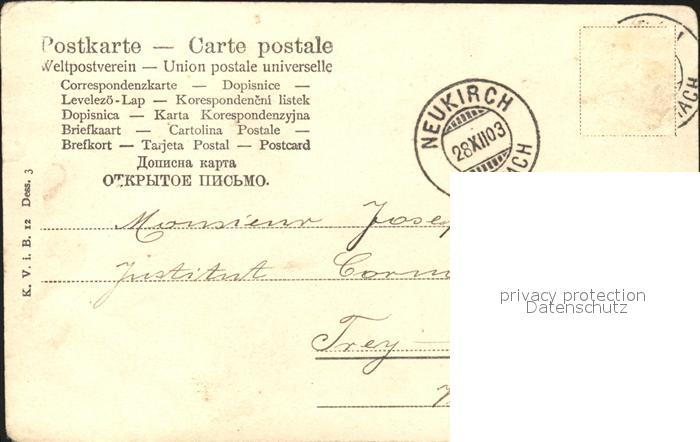 Postkarte — Carte postale
Weltpostverein — Union postale universelle
Correspondenzkarte — Dopisnice —
Levelező-Lap — Korespondenční listek
Dopisnica — Karta Korespondenzyjna
Briefkaart — Cartolina Postale —
Brefkort — Tarjeta Postal — Postcard
Дописна карта
ОТКРЫТОЕ ПИСЬМО.
K. V. i. B. 12 Dess. 3
NEUKIRCH
28XII03
ACH
ACH
Monsieur Josep
Institut Corm
Trey
privacy protection
Datenschutz